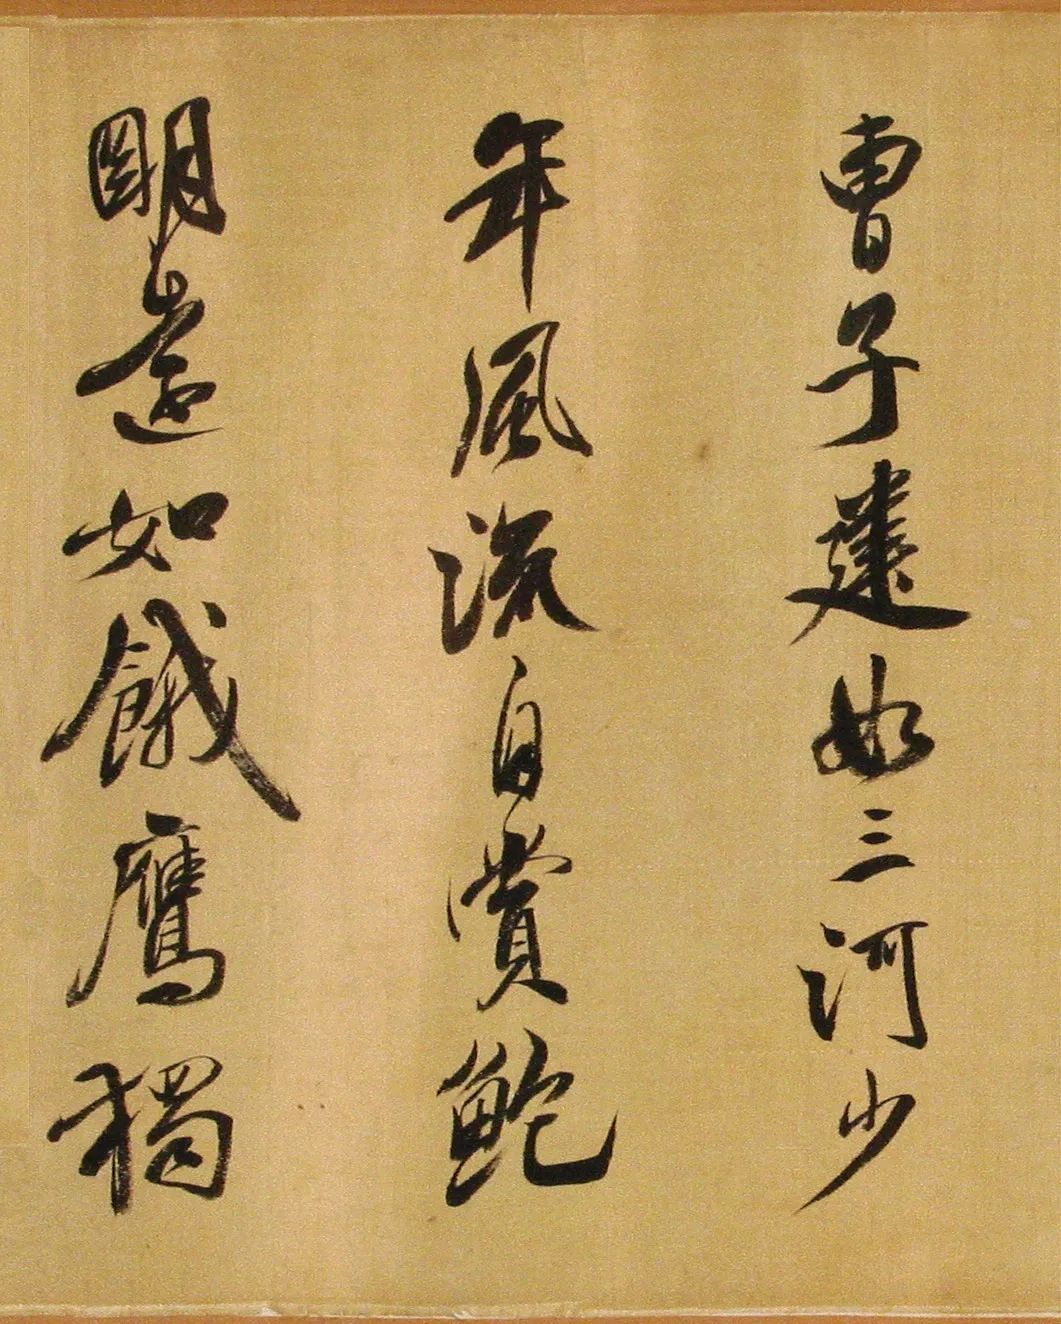 曹子建如三河少
年風流自賞鮑
明遠如餓鷹獨